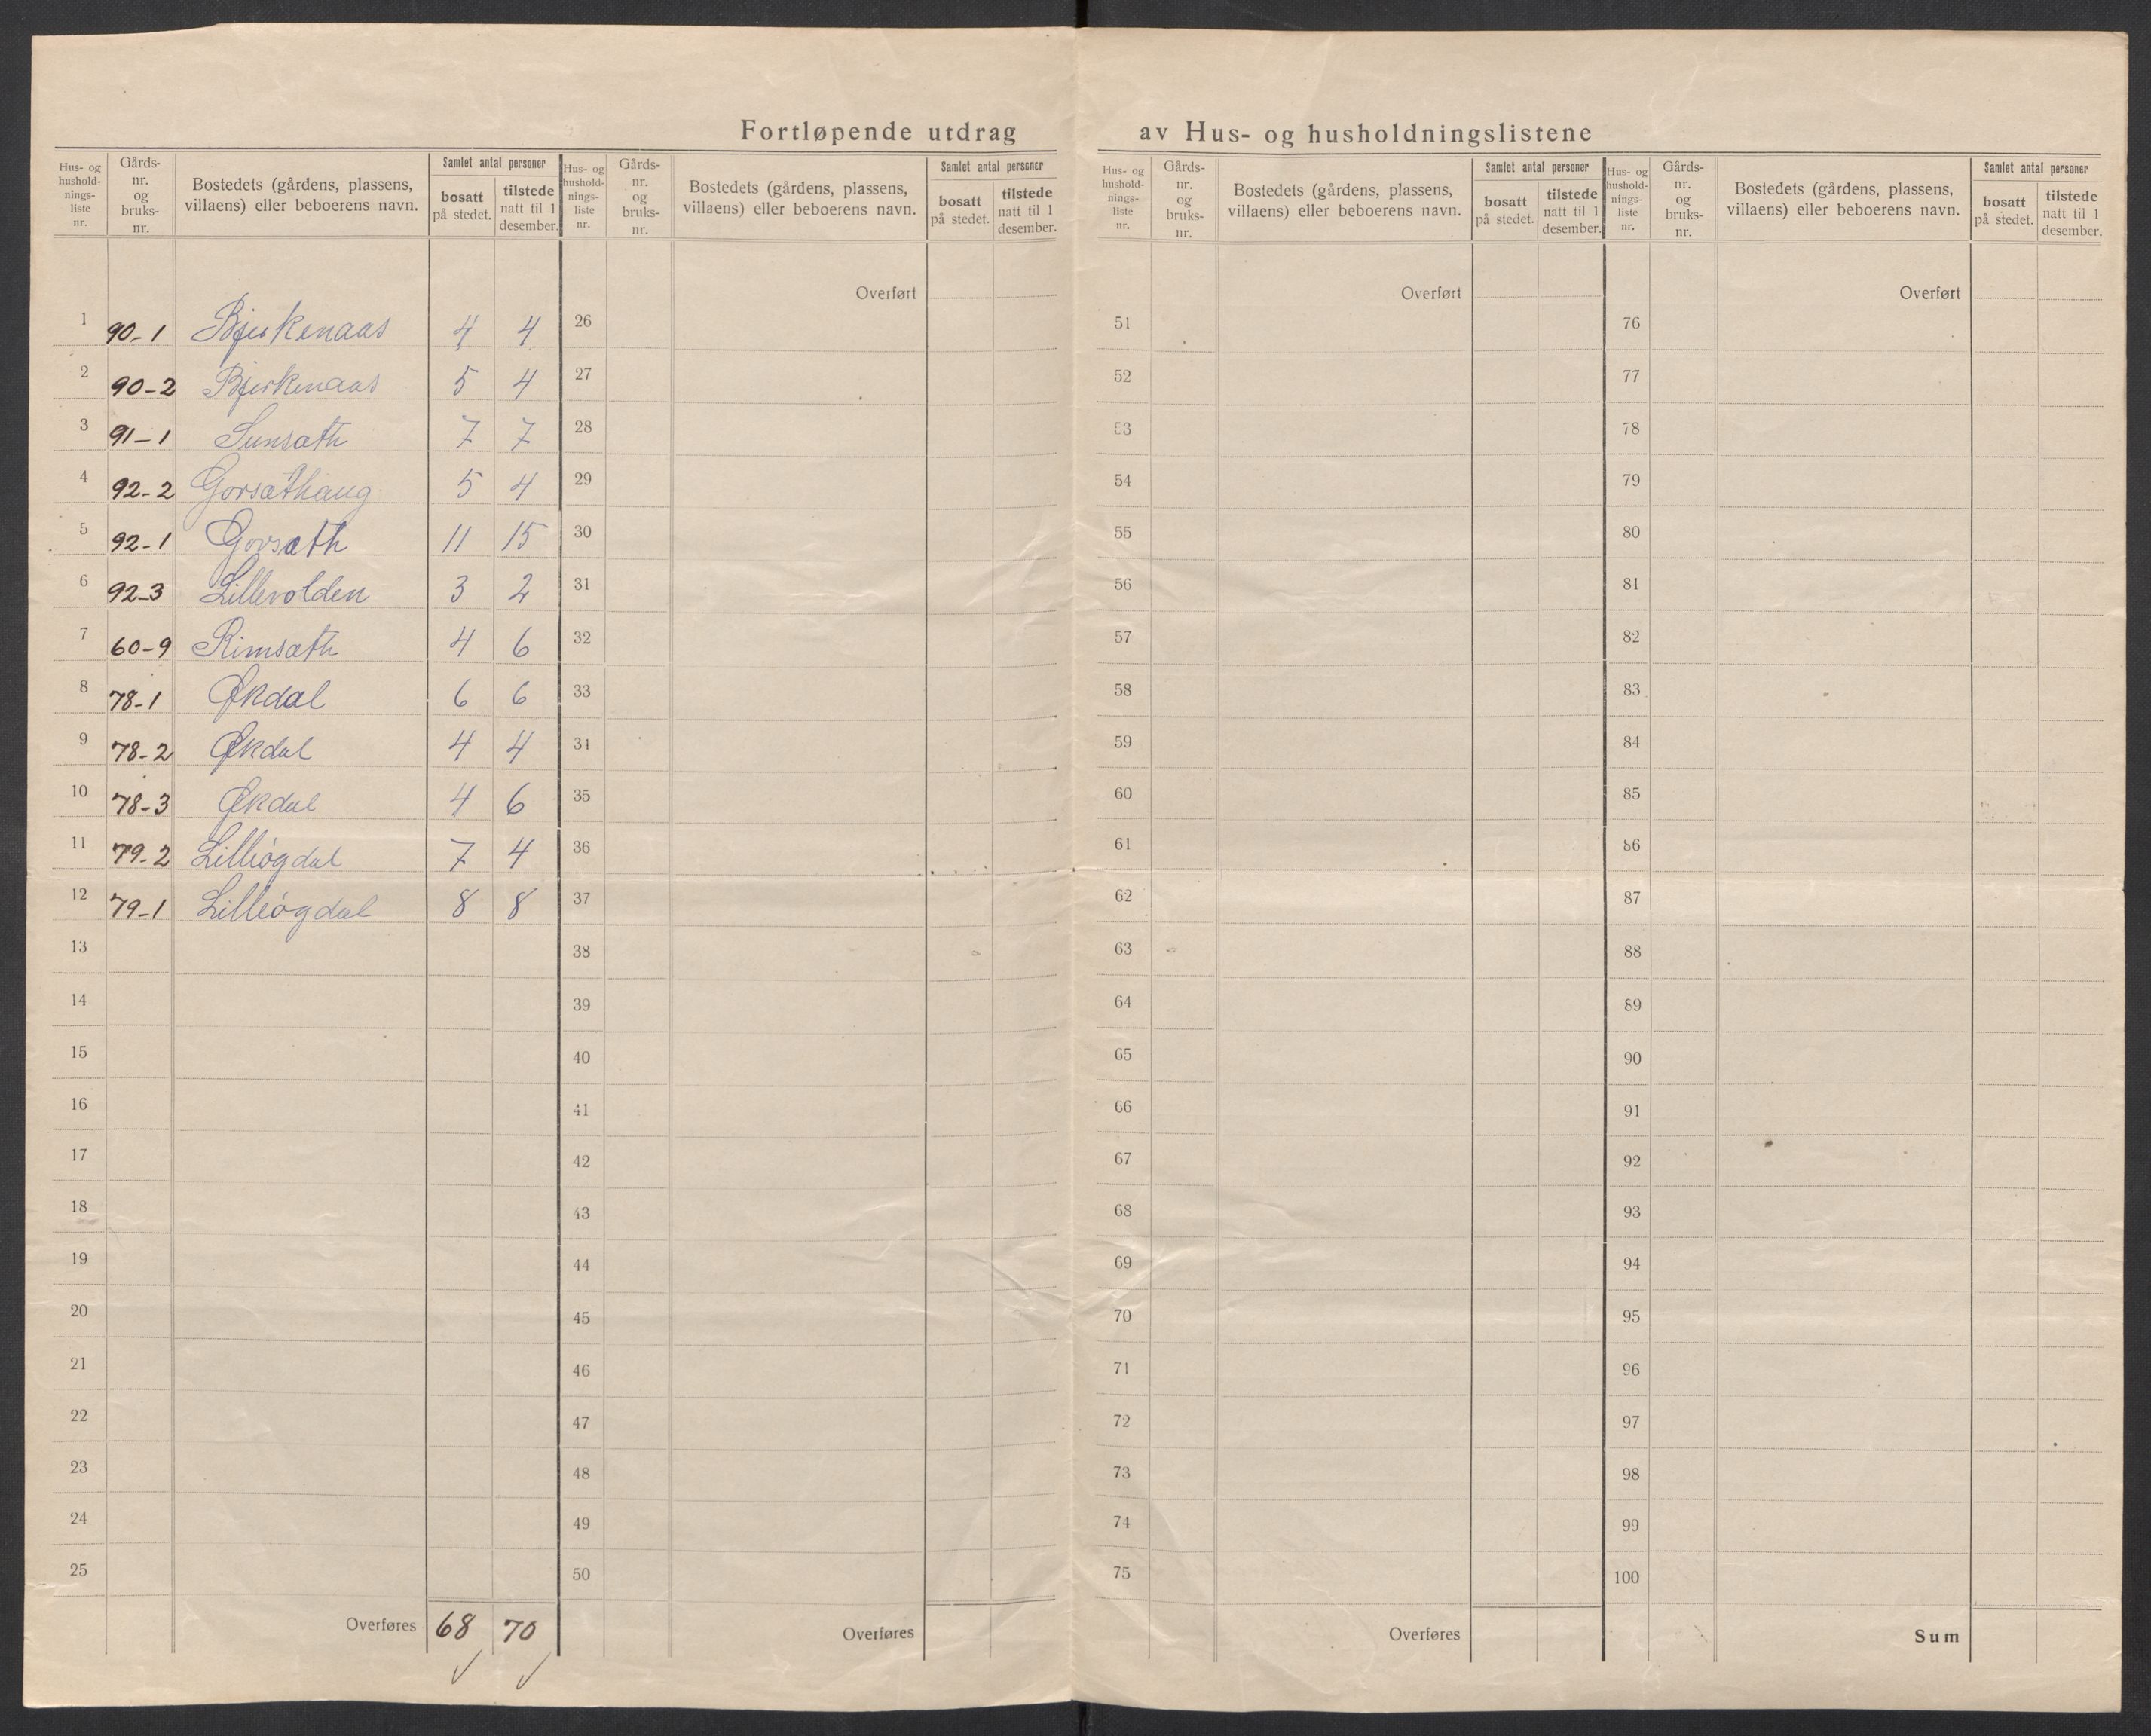 Fortløpende utdrag av Hus- og husholdningslistene
Hus- og hushold-nings-liste nr. Gårds-nr. og bruks-nr. Bostedets (gårdens, plassens, villaens) eller beboerens navn. Samlet antal personer bosatt på stedet. tilstede natt til 1 desember.
1 90-1 Bjerkenaas 4 4
2 90-2 Bjerkenaas 5 4
3 91-1 Sunsæth 7 7
4 92-2 Gorsæthaug 5 4
5 92-1 Gorsæth 11 15
6 92-3 Lillevolden 3 2
7 60-9 Rimsæth 4 6
8 78-1 Økdal 6 6
9 78-2 Økdal 4 4
10 78-3 Økdal 4 6
11 79-2 Lilleøgdal 7 4
12 79-1 Lilleøgdal 8 8
13
14
15
16
17
18
19
20
21
22
23
24
25
Overføres 68 70
Hus- og hushold-nings-liste nr. Gårds-nr. og bruks-nr. Bostedets (gårdens, plassens, villaens) eller beboerens navn. Samlet antal personer bosatt på stedet. tilstede natt til 1 desember.
Overført
26
27
28
29
30
31
32
33
34
35
36
37
38
39
40
41
42
43
44
45
46
47
48
49
50
Overføres
Hus- og hushold-nings-liste nr. Gårds-nr. og bruks-nr. Bostedets (gårdens, plassens, villaens) eller beboerens navn. Samlet antal personer bosatt på stedet. tilstede natt til 1 desember.
Overført
51
52
53
54
55
56
57
58
59
60
61
62
63
64
65
66
67
68
69
70
71
72
73
74
75
Overføres
Hus- og hushold-nings-liste nr. Gårds-nr. og bruks-nr. Bostedets (gårdens, plassens, villaens) eller beboerens navn. Samlet antal personer bosatt på stedet. tilstede natt til 1 desember.
Overført
76
77
78
79
80
81
82
83
84
85
86
87
88
89
90
91
92
93
94
95
96
97
98
99
100
Sum